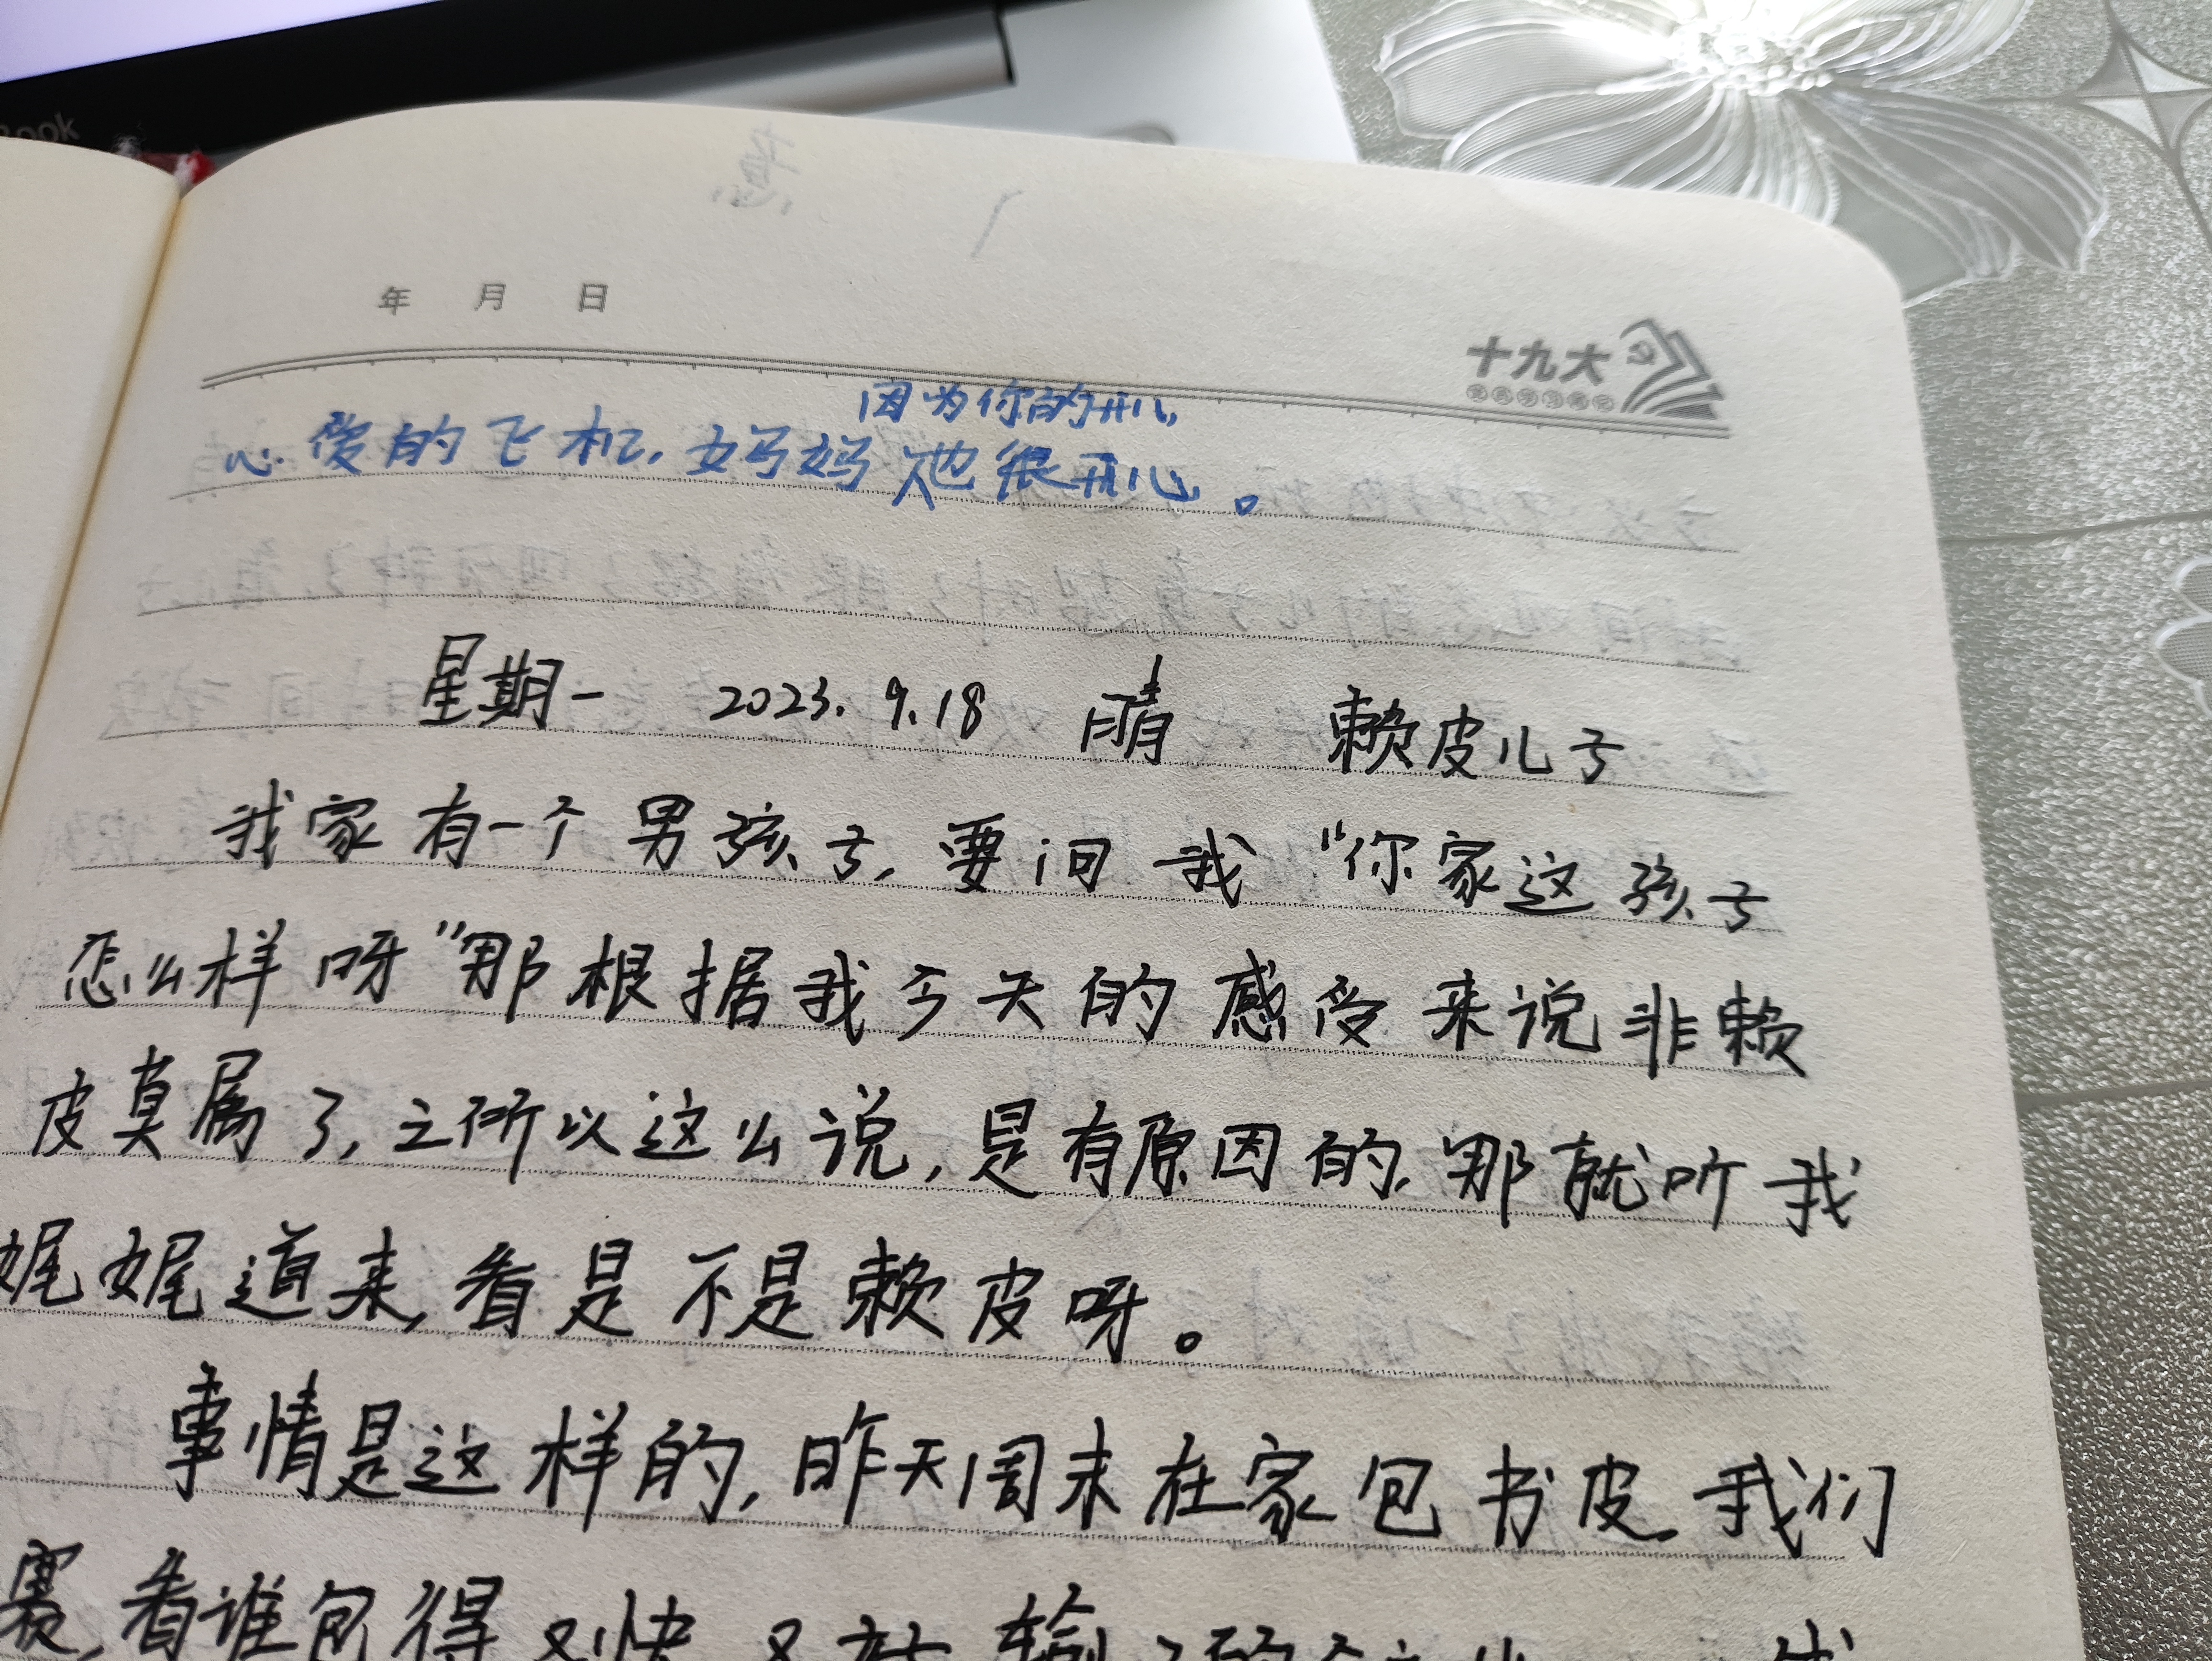 Book
年 月 日
十九大
因为你的开心,
心爱的飞机,妈妈也很开心。
星期一 2023.9.18 晴 赖皮儿子
我家有一个男孩子,要问我“你家这孩子
怎么样呀”那根据我今天的感受来说非赖
皮莫属了,之所以这么说,是有原因的,那就听我
娓娓道来,看是不是赖皮呀。
事情是这样的,昨天周末在家包书皮,我们
赛,看谁包得又快又好 输了的